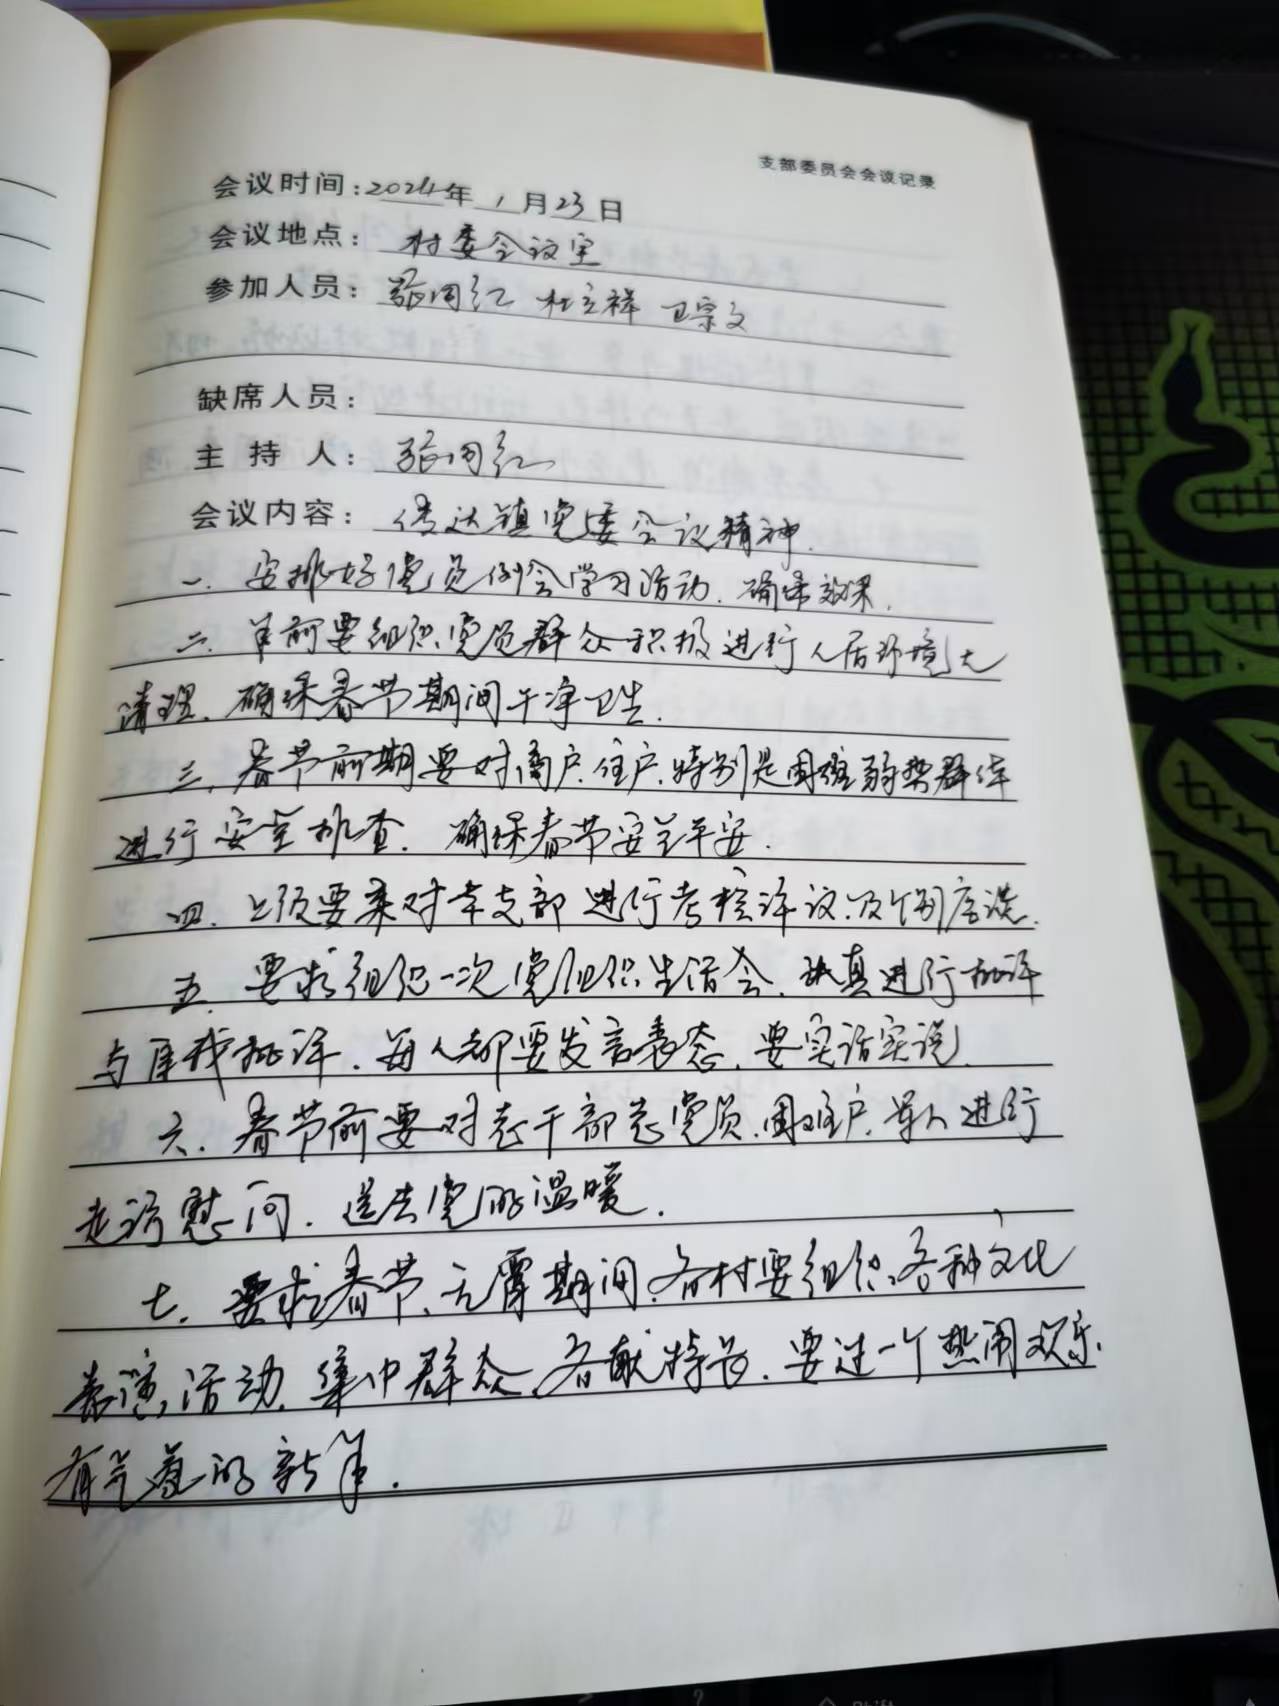 支部委员会会议记录
会议时间：2024年 1 月 23 日
会议地点： 村委会议室
参加人员： 张同红 杜立祥 卫宗文
缺席人员：
主 持 人： 张同红
会议内容： 传达镇党委会议精神.
一. 安排好党员例会学习活动. 确保效果.
二. 年前要组织党员群众积极进行人居环境大
清理. 确保春节期间干净卫生.
三. 春节前期要对商户、住户、特别是困难弱势群体
进行安全排查. 确保春节安全平安.
四. 上级要来对本支部进行考核评议及个别座谈.
五. 要求组织一次党组织生活会. 认真进行批评
与自我批评. 每人都要发言表态. 要实话实说.
六. 春节前要对老干部老党员、困难户、军人进行
走访慰问. 送去党的温暖.
七. 要求春节、元宵期间.各村要组织各种文化
表演活动. 集中群众、各献特长. 要过一个热闹欢乐.
有气氛的新年.